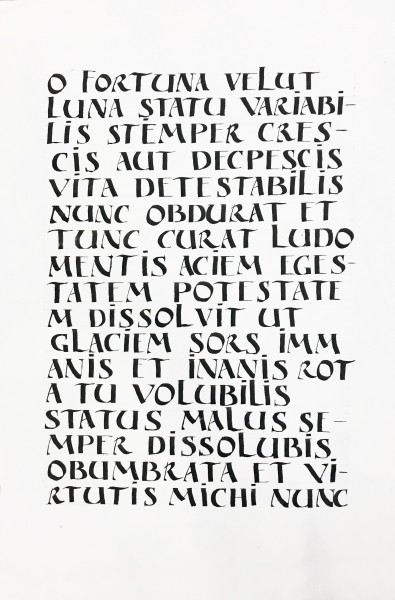 O FORTUNA VELUT
LUNA STATU VARIABI-
LIS STEMPER CRES-
CIS AUT DECPESCIS
VITA DETESTABILIS
NUNC OBDURAT ET
TUNC CURAT LUDO
MENTIS ACIEM EGES-
TATEM POTESTATE
M DISSOLVIT UT
GLACIEM SORS IMM
ANIS ET INANIS ROT
A TU VOLUBILIS
STATUS MALUS SE-
MPER DISSOLUBIS
OBUMBRATA ET VI-
RTUTIS MICHI NUNC